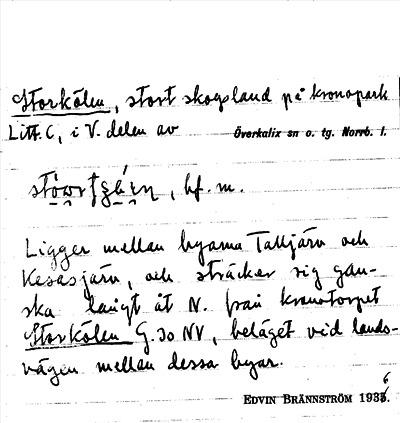 Storkölen, stort skogsland på kronopark
Litt. C, i V. delen av Överkalix sn o. tg. Norrb. l.
, bf. m.
Ligger mellan byarna Talljärv och
Kesasjärv, och sträcker sig gan-
ska långt åt N. från kronotorpet
Storkölen G. 30 NV, beläget vid lands-
vägen mellan dessa byar.
EDVIN BRÄNNSTRÖM 1936.